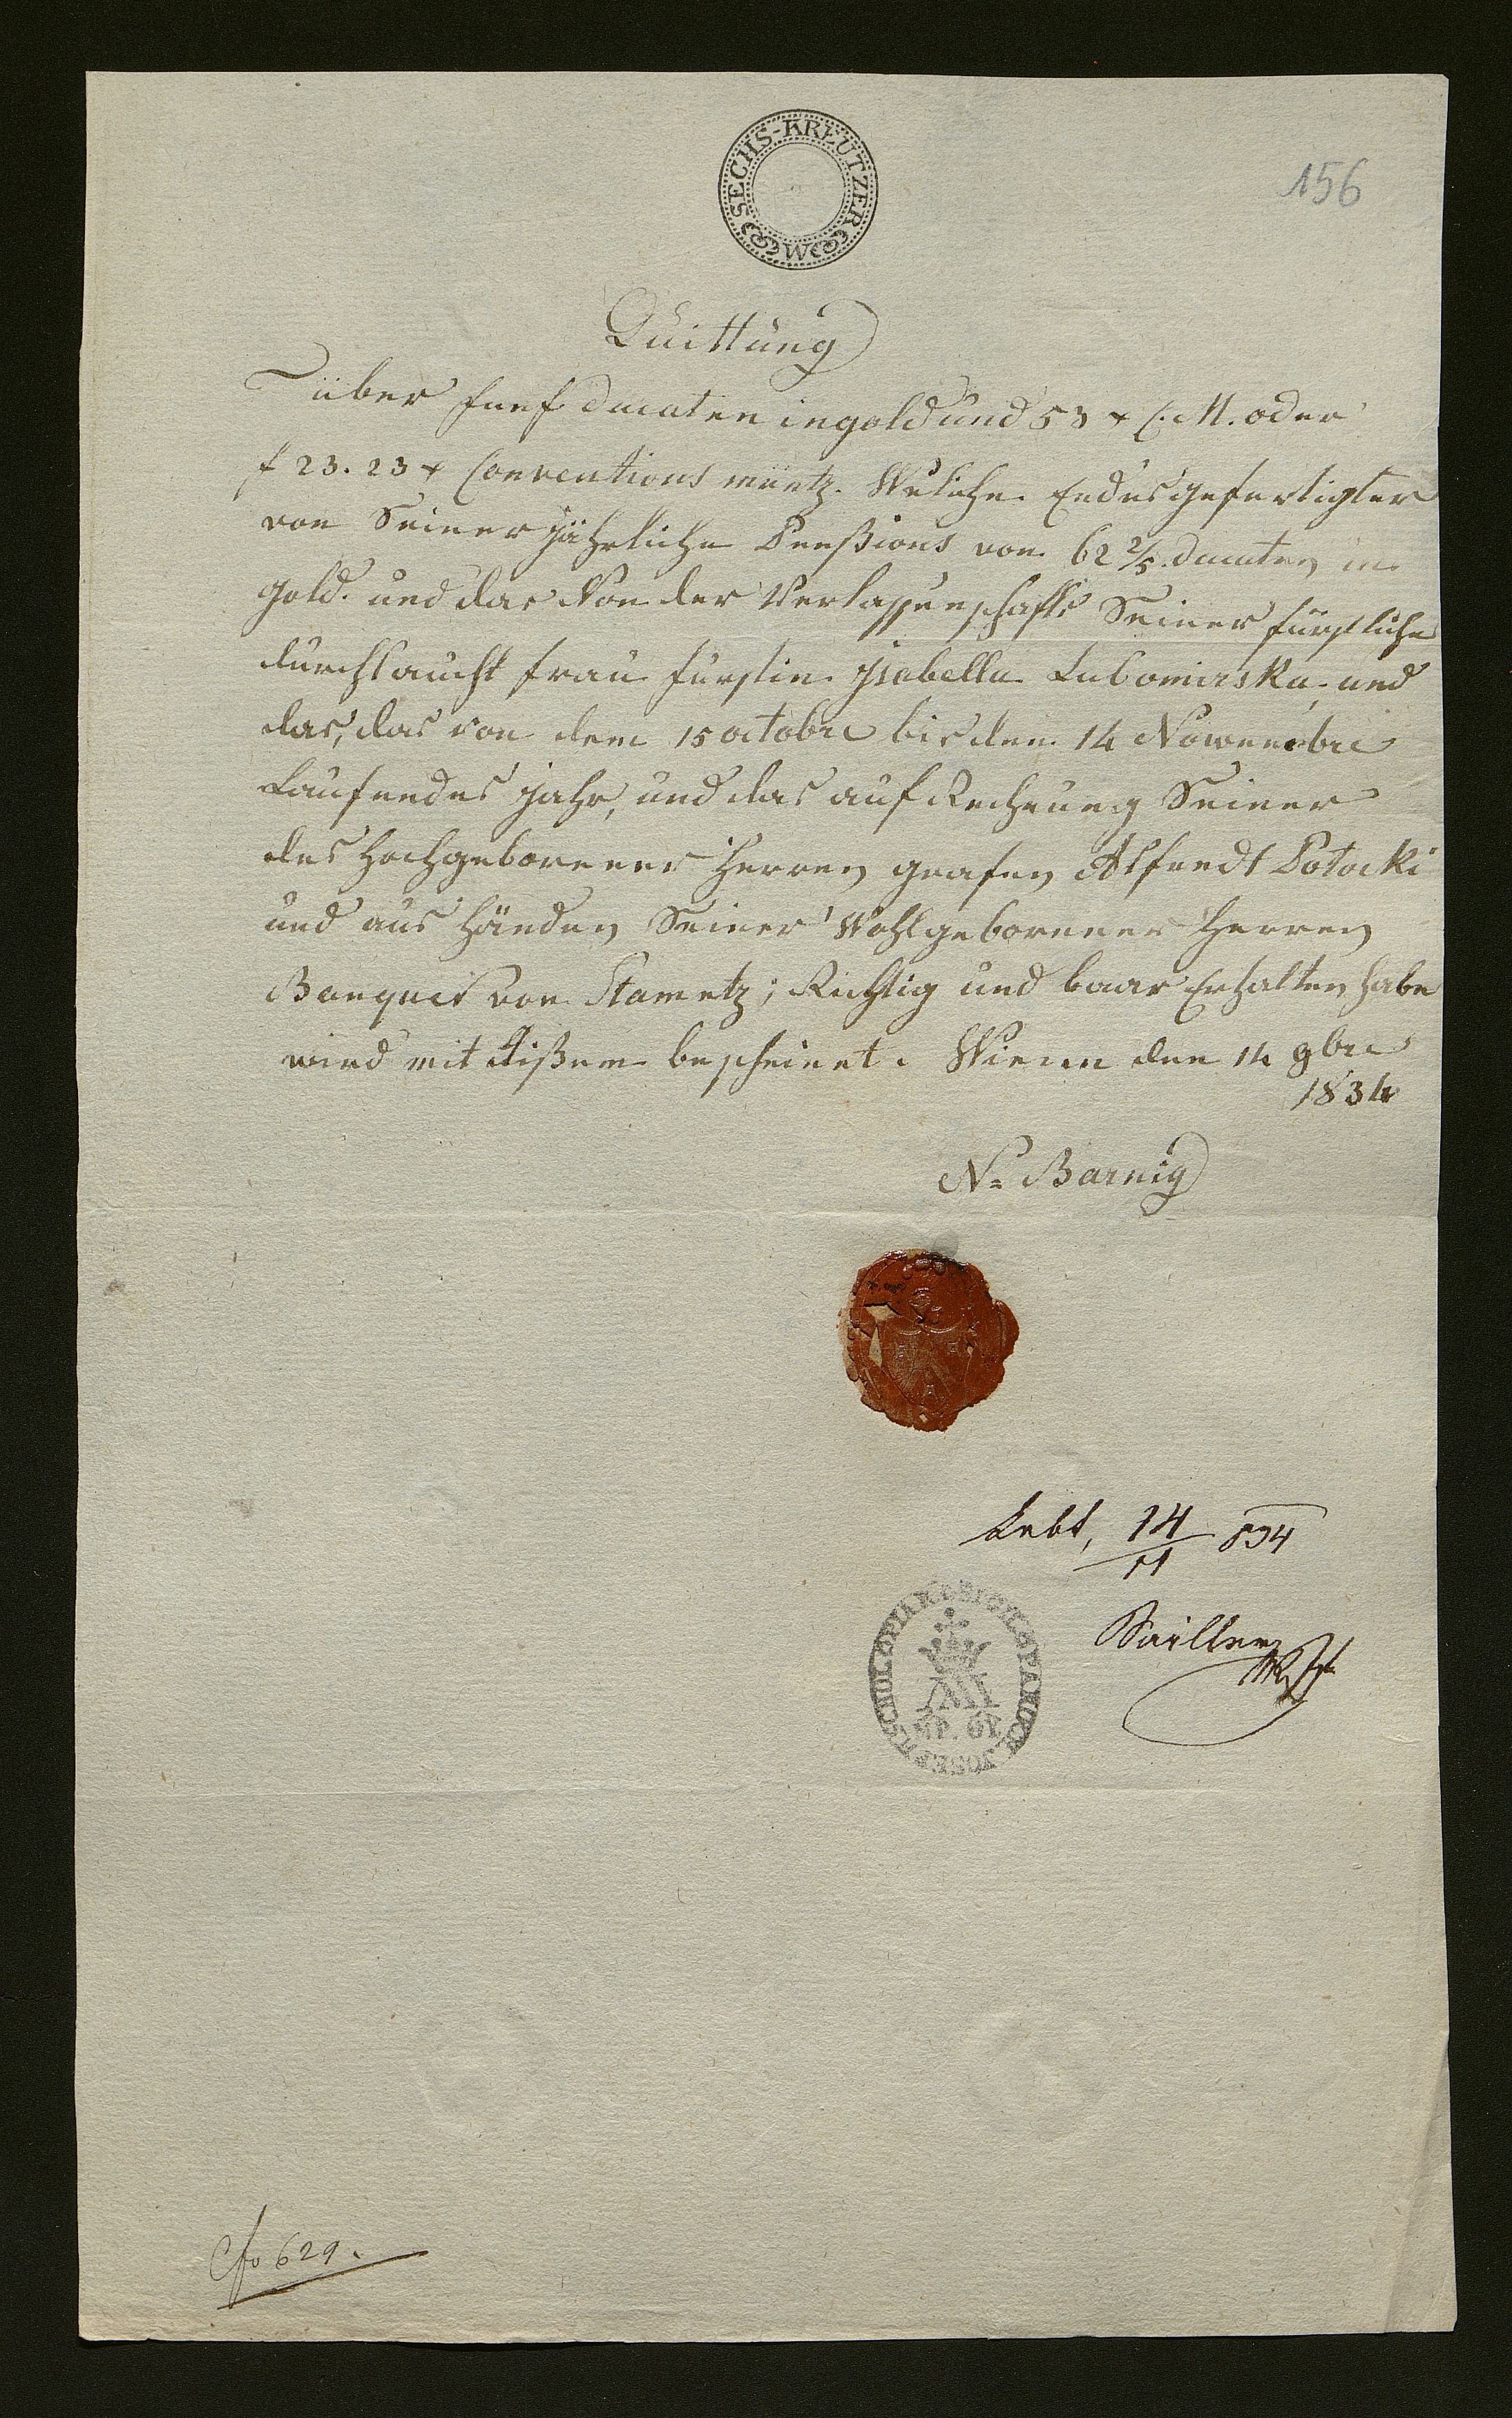 SECHS-KREUTZER W
156
Quittung
über funf ducaten in gold und 53 x C. M. oder
f 23. 23 x Conventions müntz. Weliche Endesgefertigter
von Seiner jährliche Penßions von 62 2/5 ducaten in
gold. und das Von der Verlassenschafts Seiner fürstliche
durchlaucht frau fürstin Isabella Lubomirska, und
das, das von dem 15 octobre bis den 14 Nowembre
Laufendes jahr, und das auf Rechnung Seiner
des Hochgeborener Herren grafen Alfredt Potocki
und aus Händen Seiner Wohlgeborener Herren
Banquet von Stametz; Richtig und baar Erhalten habe
wird mit dißem bescheinet. Wienn den 14 9bre
1834
N= Barnig
Lebt, 14/11 834
SCHOL. PIAR.
M